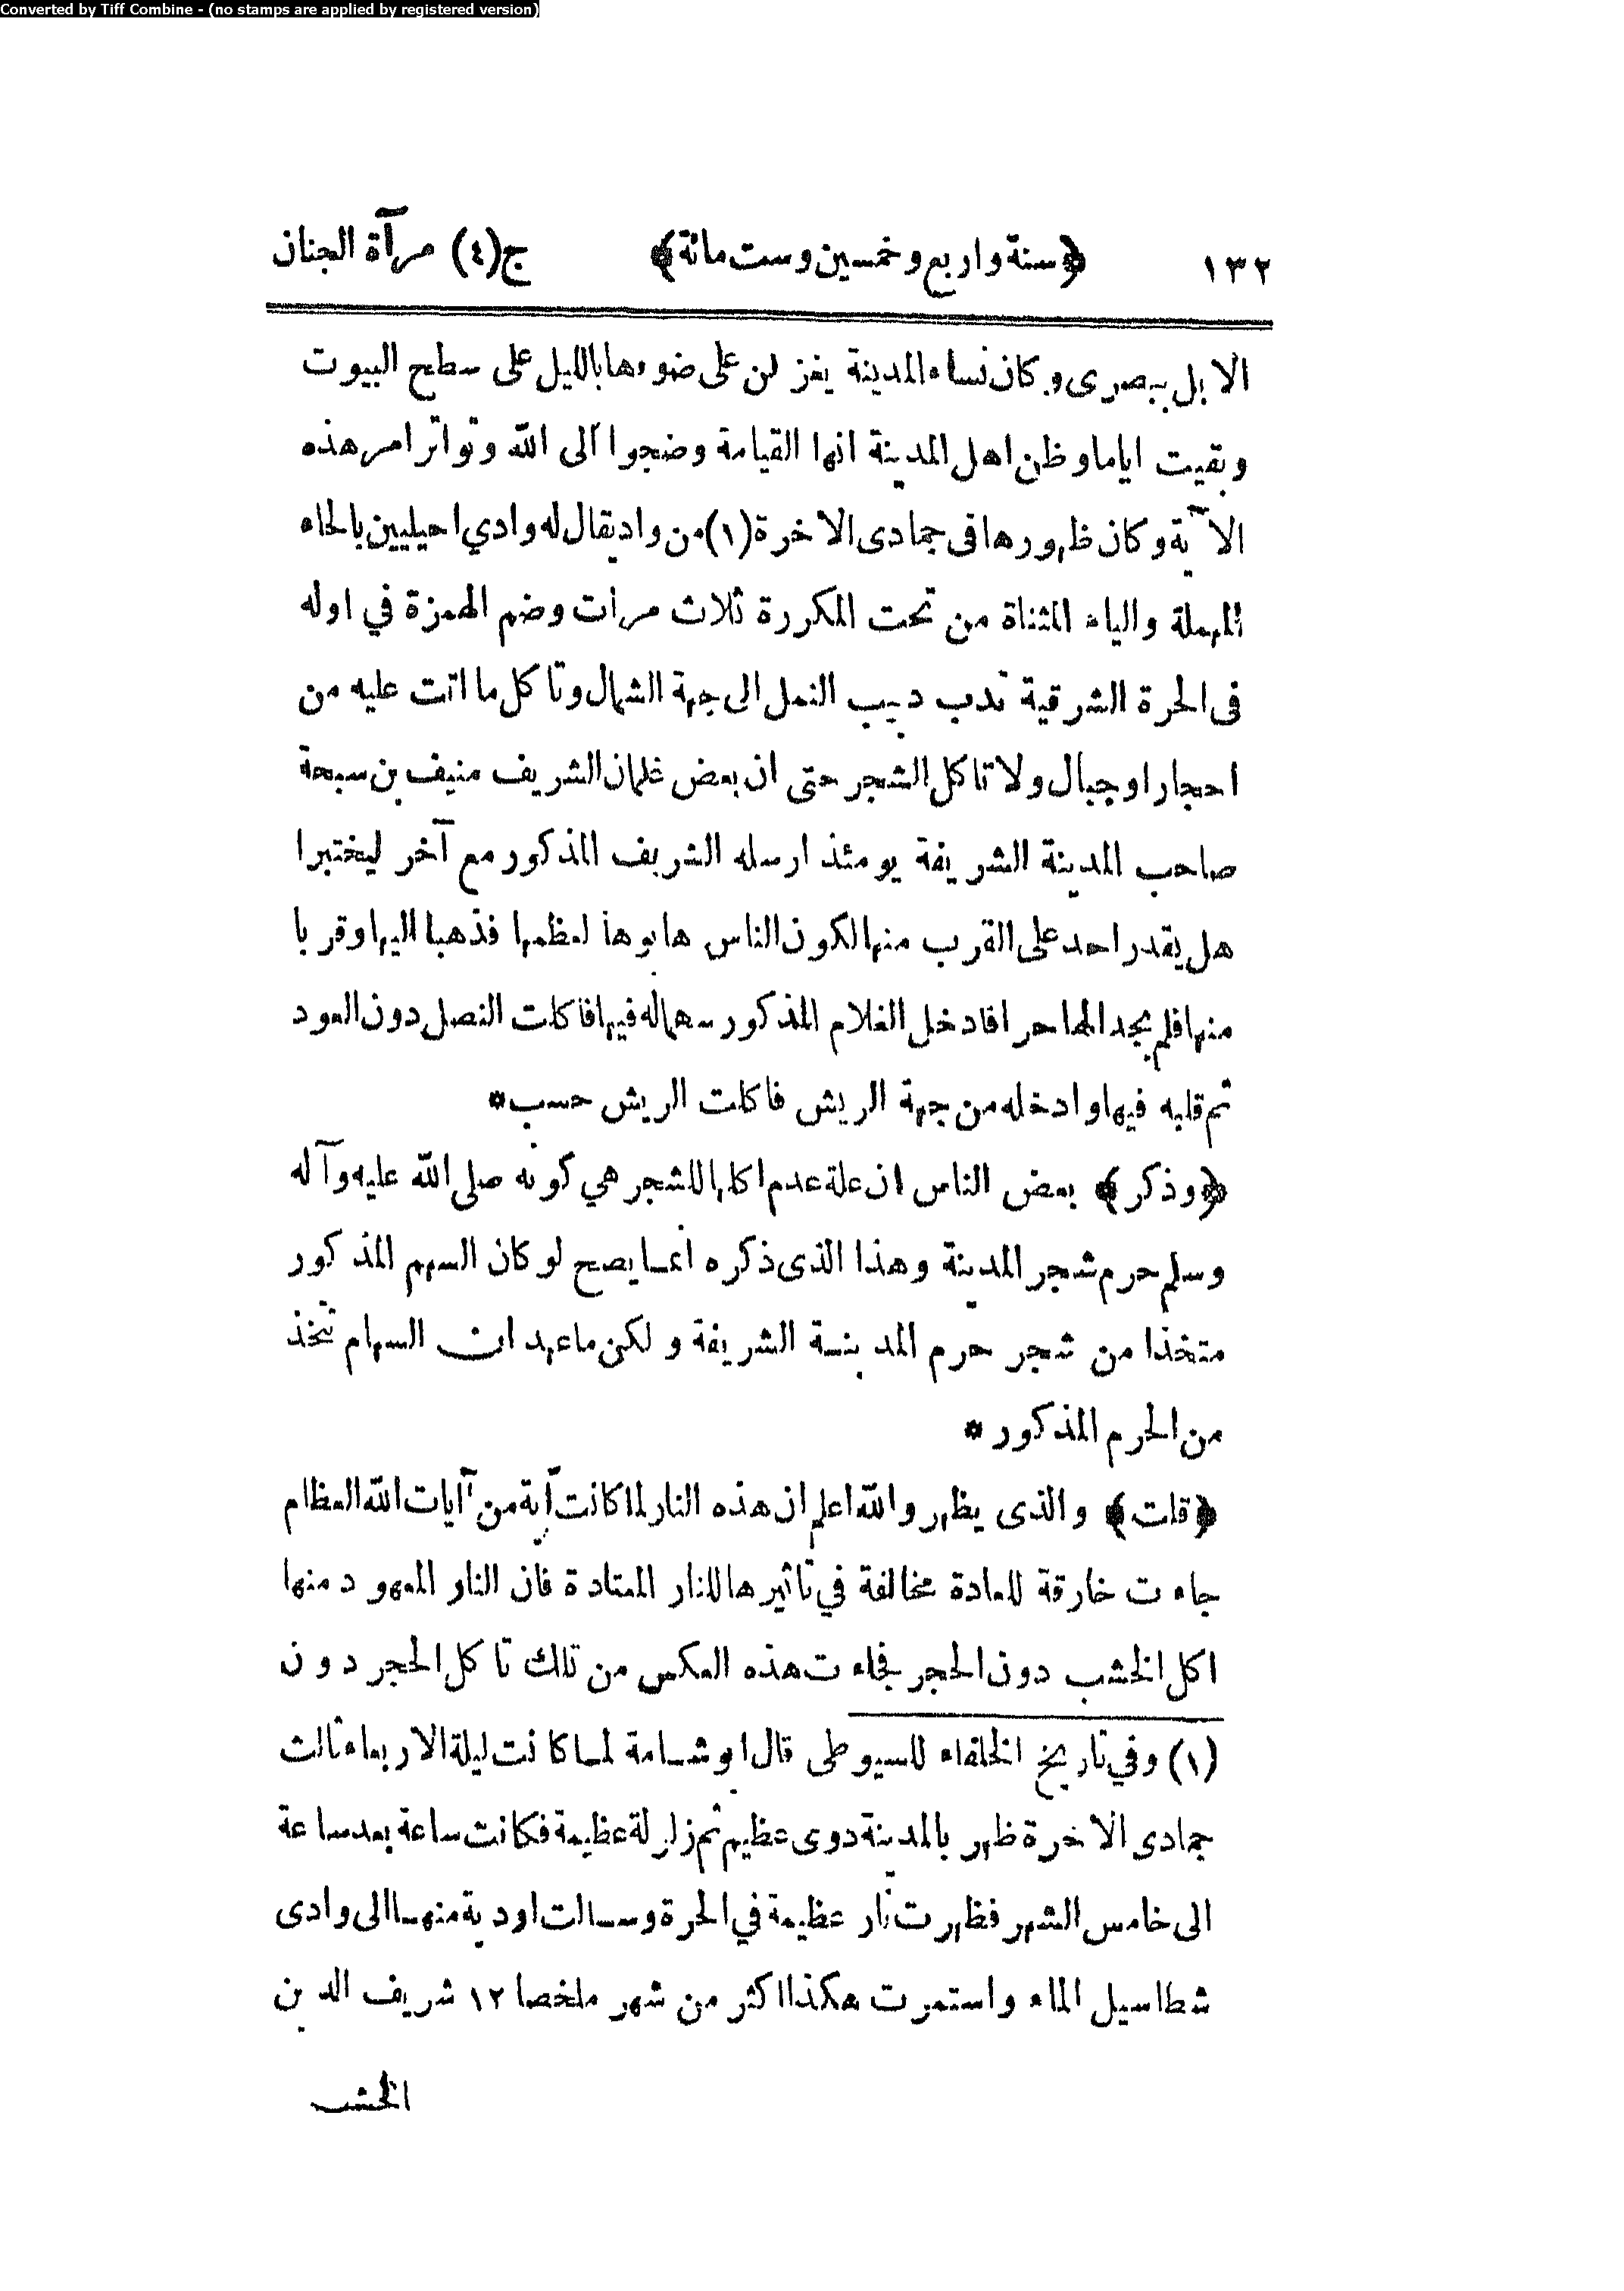 Converted by Tiff Combine - (no stamps are applied by registered version)
١٣٢ ﴿سنة واربع وخمسين وست مائة﴾ ج(٤) مرآة الجنان
الابل ببصرى وكان نساء المدينة يغزلن على ضوءها بالليل على سطح البيوت
وبقيت اياما وظن اهل المدينة انها القيامة وضجوا الى الله وتواتر امر هذه
الآية وكان ظهورها فى جمادى الاخرة (١) من واد يقال له وادي احيليين بالحاء
المهملة والياء المثناة من تحت المكررة ثلاث مرات وضم الهمزة في اوله
فى الحرة الشرقية تدب دبيب النمل الى جهة الشمال وتاكل ما اتت عليه من
احجار او جبال ولا تاكل الشجر حتى ان بعض غلمان الشريف منيف بن سبحة
صاحب المدينة الشريفة يومئذ ارسله الشريف المذكور مع آخر ليختبرا
هل يقدر احد على القرب منها لكون الناس هابوها لعظمها فذهبا اليها وقربا
منها فلم يجد الها حرا فادخل الغلام المذكور سهما له فيها فاكلت النصل دون العود
ثم قلبه فيها وادخله من جهة الريش فاكلت الريش حسب*
﴿وذكر﴾ بعض الناس ان علة عدم اكلها للشجر هي كونه صلى الله عليه وآله
وسلم حرم شجر المدينة وهذا الذى ذكره انما يصح لو كان السهم المذكور
متخذا من شجر حرم المدينة الشريفة ولكن ما عهد ان السهام تتخذ
من الحرم المذكور *
﴿قلت﴾ والذى يظهر والله اعلم ان هذه النار لما كانت آية من آيات الله العظام
جاءت خارقة للعادة مخالفة في تاثيرها للنار المعتادة فان النار المعهود منها
اكل الخشب دون الحجر فجاءت هذه العكس من تلك تاكل الحجر دون
(١) وفي تاريخ الخلفاء للسيوطى قال ابو شامة لما كانت ليلة الاربعاء ثالث
جمادى الاخرة ظهر بالمدينة دوى عظيم ثم زلزلة عظيمة فكانت ساعة بعد ساعة
الى خامس الشهر فظهرت نار عظيمة في الحرة وسالت اودية منها الى وادى
شطا سيل الماء واستمرت هكذا اكثر من شهر ملخصا ١٢ شريف الدين
الخشب